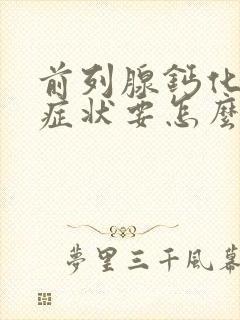 前列腺鈣化
症狀要怎麼
夢里三千風幕